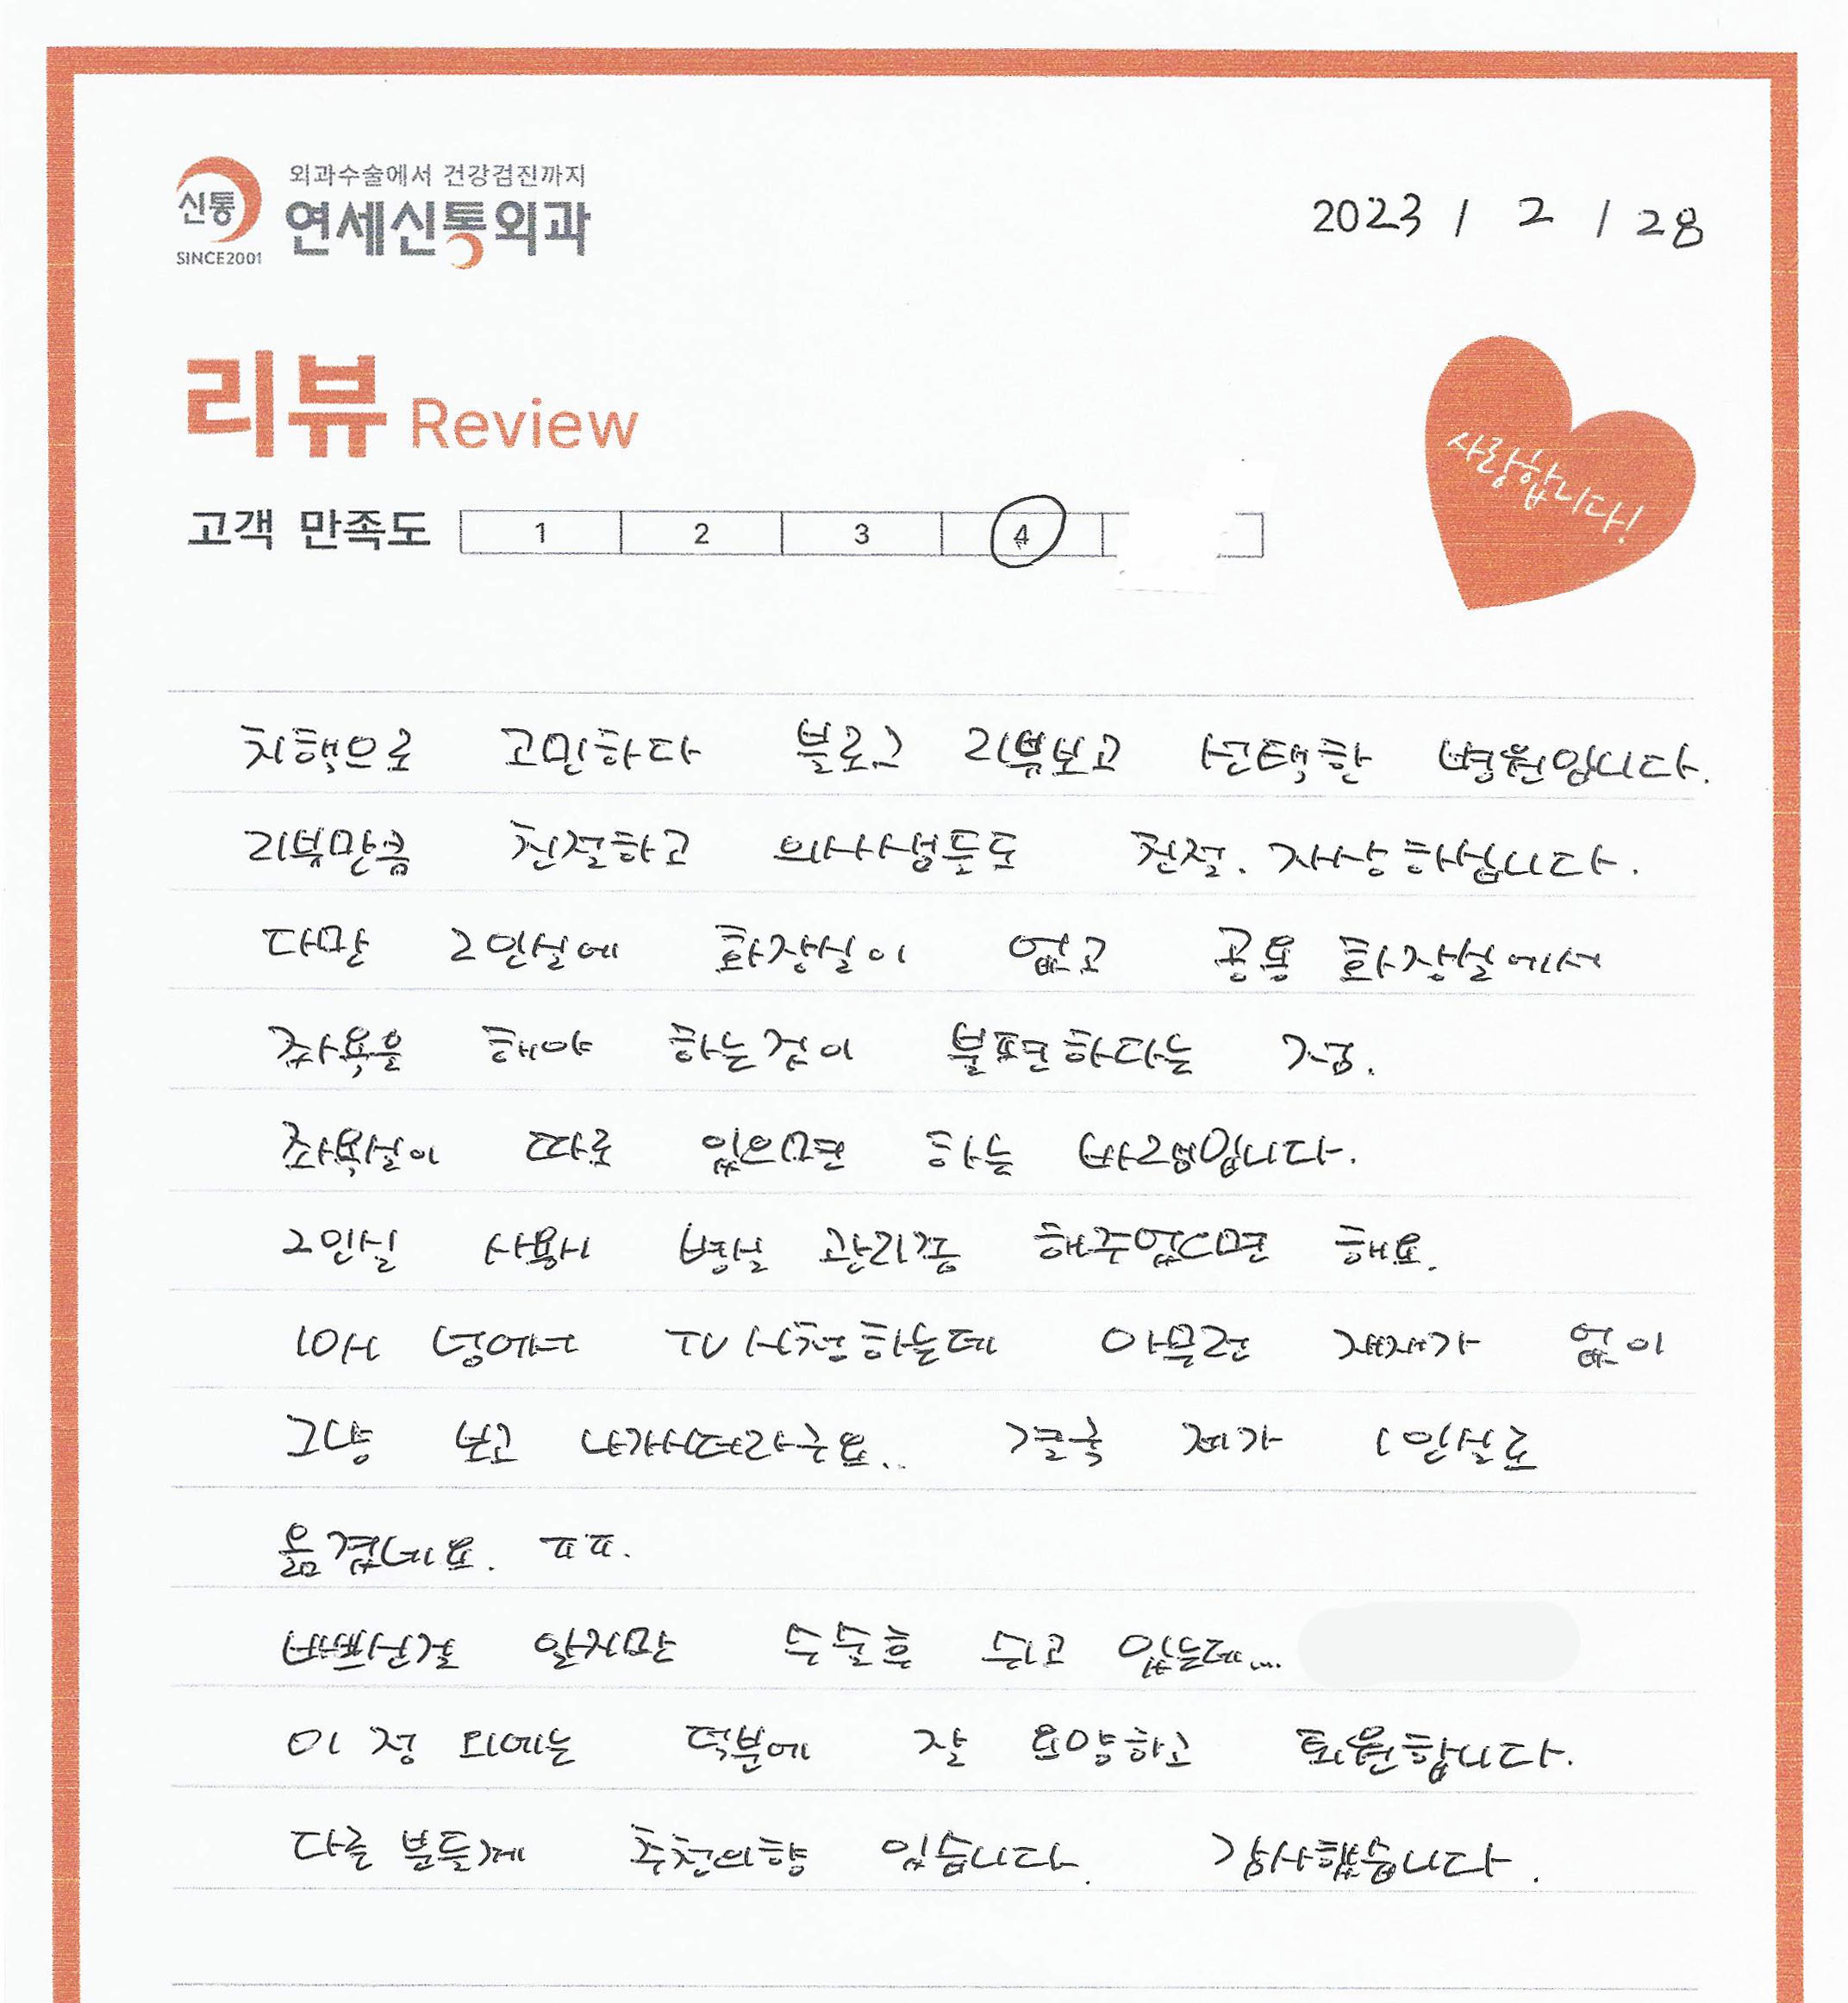 신통
SINCE2001
외과수술에서 건강검진까지
연세신통외과
2023 / 2 / 28
리뷰 Review
사랑합니다!
고객 만족도 1 2 3 4
치핵으로 고민하다 블로그 리뷰보고 선택한 병원입니다.
리뷰만큼 친절하고 의사샘들도 친절. 자상하십니다.
다만 2인실에 화장실이 없고 공용 화장실에서
좌욕을 해야 하는것이 불편하다는 점.
좌욕실이 따로 있으면 하는 바램입니다.
2인실 사용시 병실 관리좀 해주었으면 해요.
10시 넘어서 TV시청하는데 아무런 제재가 없이
그냥 보고 나가시더라구요.. 결국 제가 1인실로
옮겼네요. ㅠㅠ.
바쁘신걸 알지만 수술후 쉬고 있는데....
이 점 외에는 덕분에 잘 요양하고 퇴원합니다.
다른 분들께 추천의향 있습니다. 감사했습니다.